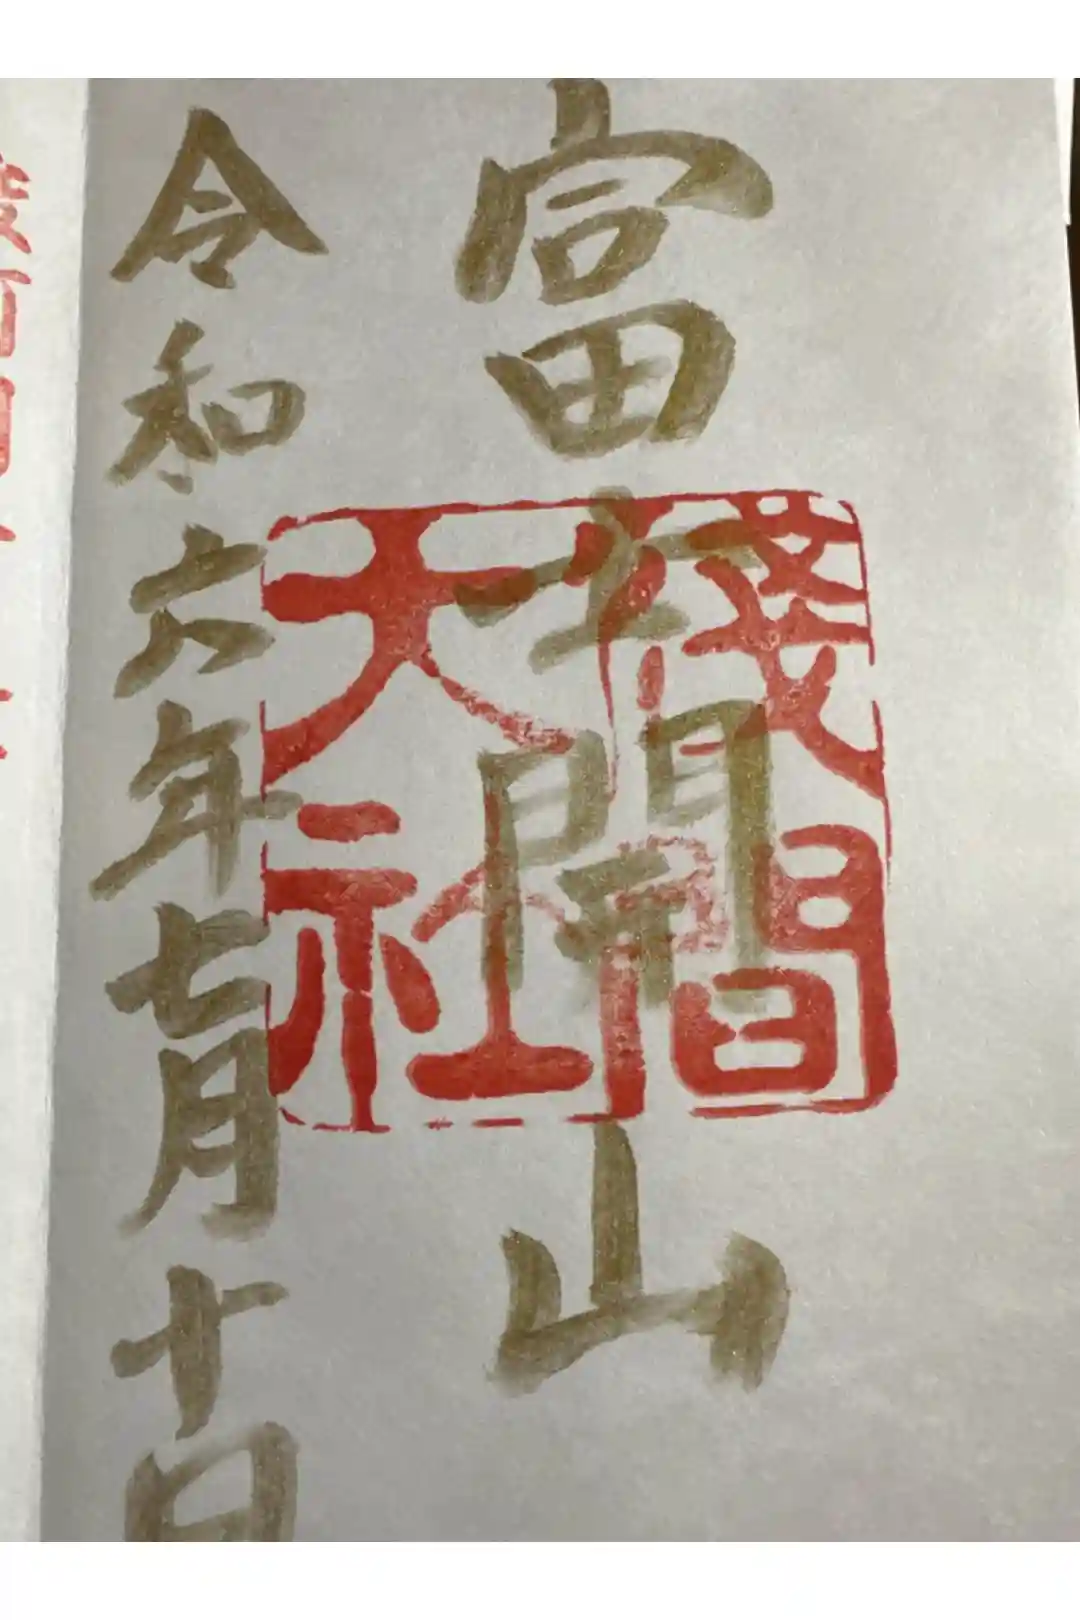 富士開山
淺間
大社
令和六年七月十日